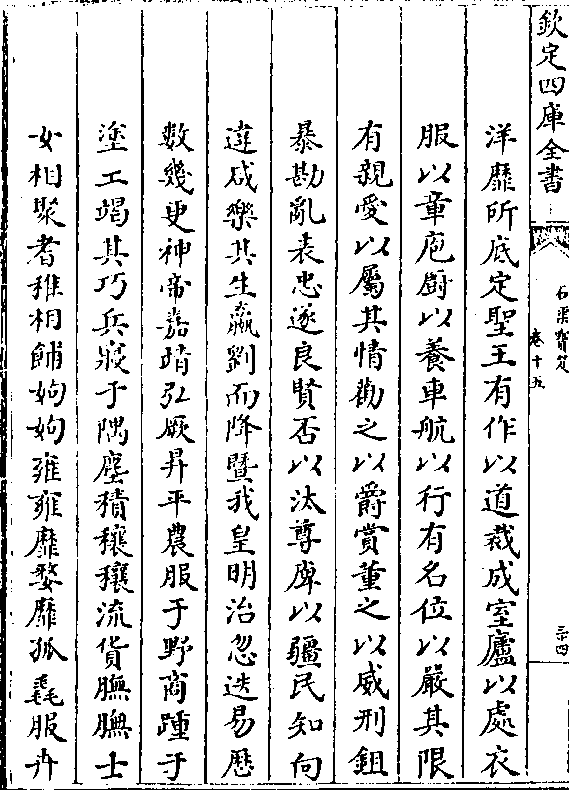 欽定四庫全書
卷十五
三十四
洋靡所底定聖王有作以道裁成室廬以處衣
服以章庖廚以養車航以行有名位以嚴其限
有親愛以屬其情勸之以爵賞董之以威刑鉏
暴勘亂表忠遂良賢否以汰尊卑以疆民知向
違咸樂其生嬴劉而降暨我皇明治忽迭易歷
數幾更神帝嘉靖弘厥昇平農服于野商踵于
塗工竭其巧兵寢于隅塵積穰穰流貨膴膴士
女相聚耆稚相餔姁姁雍雍靡婺靡孤毳服卉